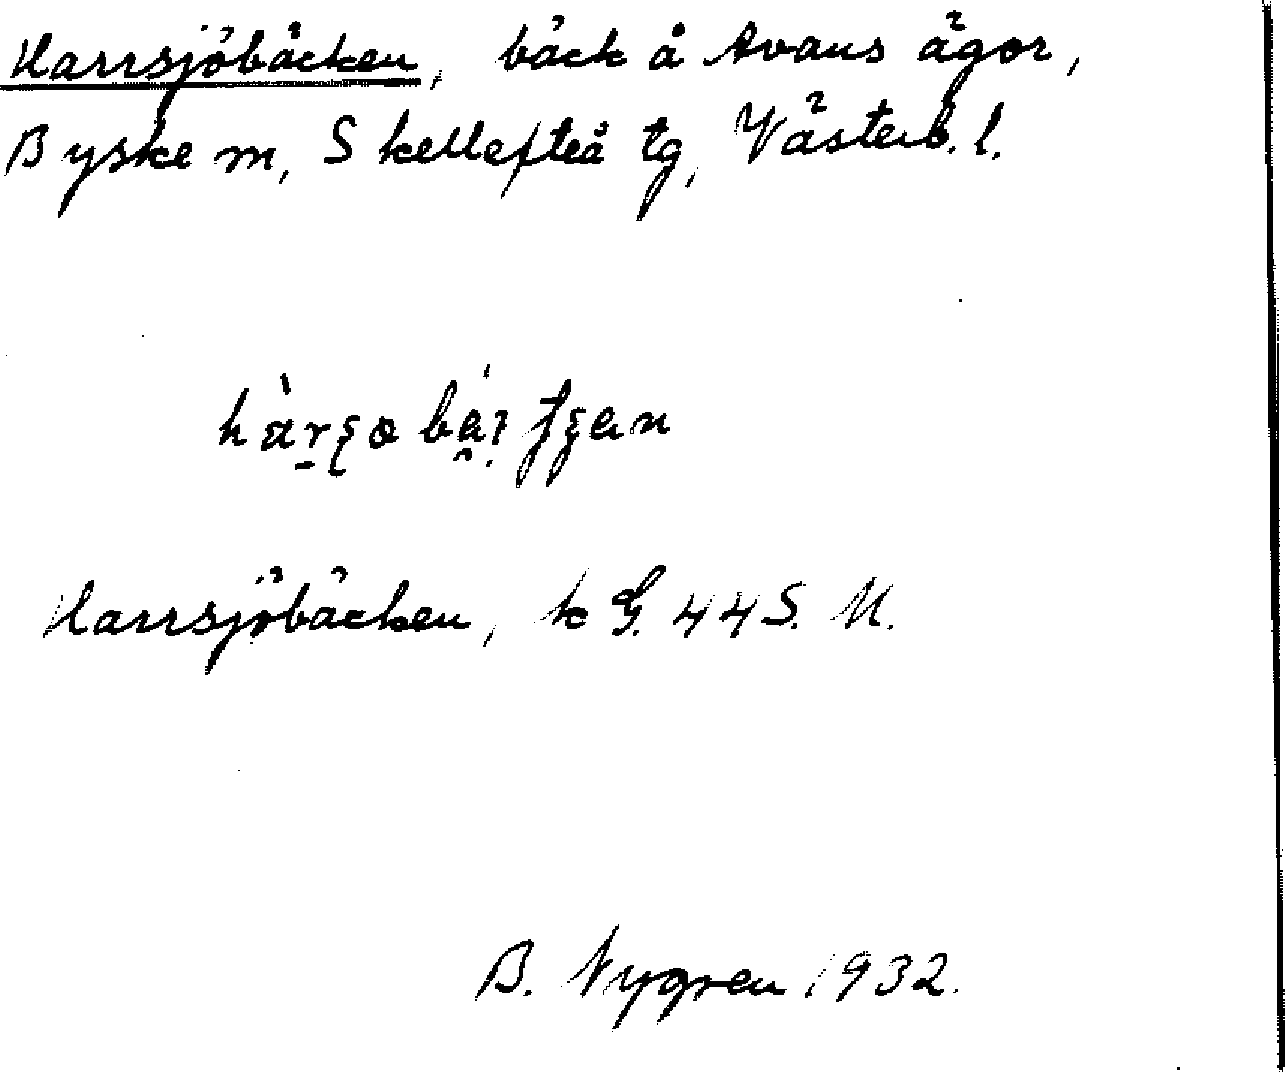 Harrsjöbäcken, bäck å Avans ägor,
Byske m, Skellefteå tg, Västerb. l.
Harrsjöbäcken, k G. 44 S. U.
B. Nygren 1932.